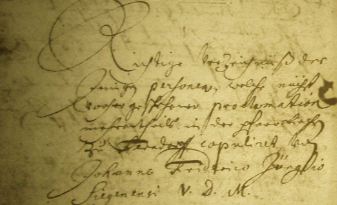 Richtige Verzeichnuß der
Jenigen personen, welche nach
vorhergeschehener proclamation
mehrentheils in der pfarrkirch
zu copuliret von
Johanne Friderico Jüngstio
Sigenensi V. D. M.